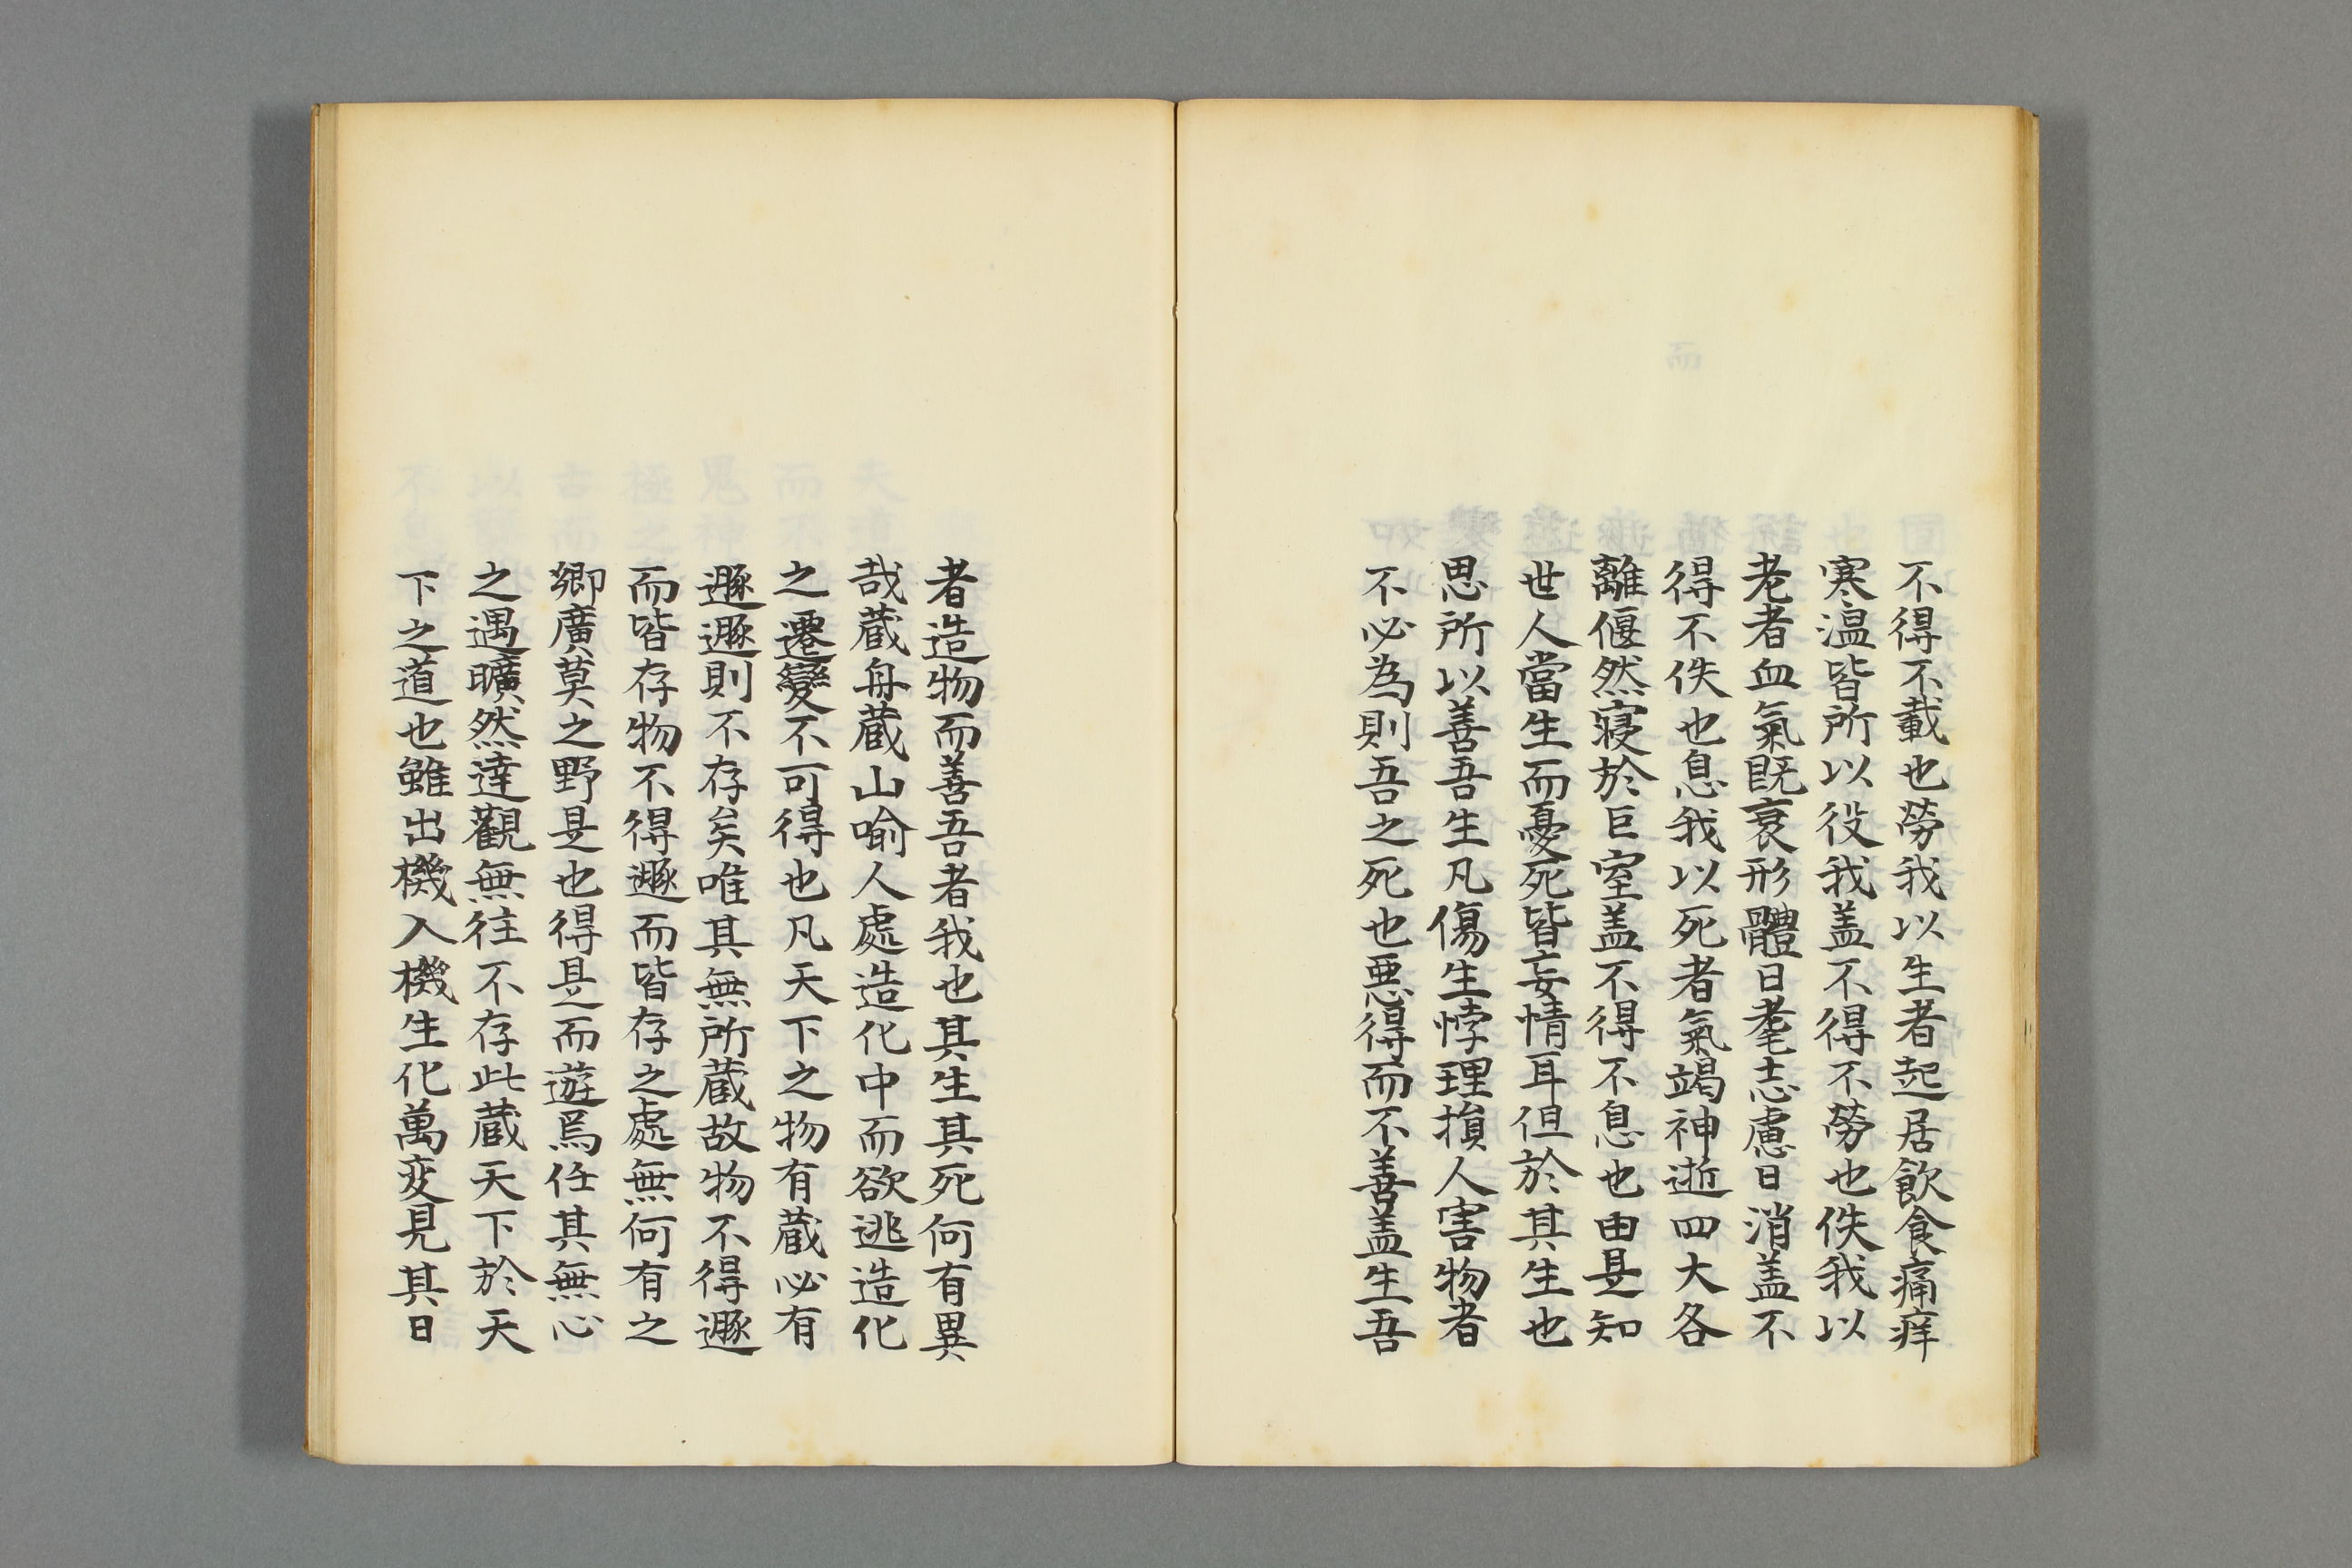 不得不載也勞我以生者起居飲食痛痒
寒温皆所以役我盖不得不勞也佚我以
老者血氣既衰形體日耄志慮日消盖不
得不佚也息我以死者氣竭神逝四大各
離偃然寢於巨室盖不得不息也由是知
世人當生而憂死皆妄情耳但於其生也
思所以善吾生凡傷生悖理損人害物者
不必為則吾之死也惡得而不善盖生吾
者造物而善吾者我也其生其死何有異
哉蔵舟蔵山喻人處造化中而欲逃造化
之遷變不可得也凡天下之物有蔵必有
遯遯則不存矣唯其無所蔵故物不得遯
而皆存物不得遯而皆存之處無何有之
鄉廣莫之野是也得是而遊焉任其無心
之遇曠然達觀無往不存此蔵天下於天
下之道也雖出機入機生化萬変見其日